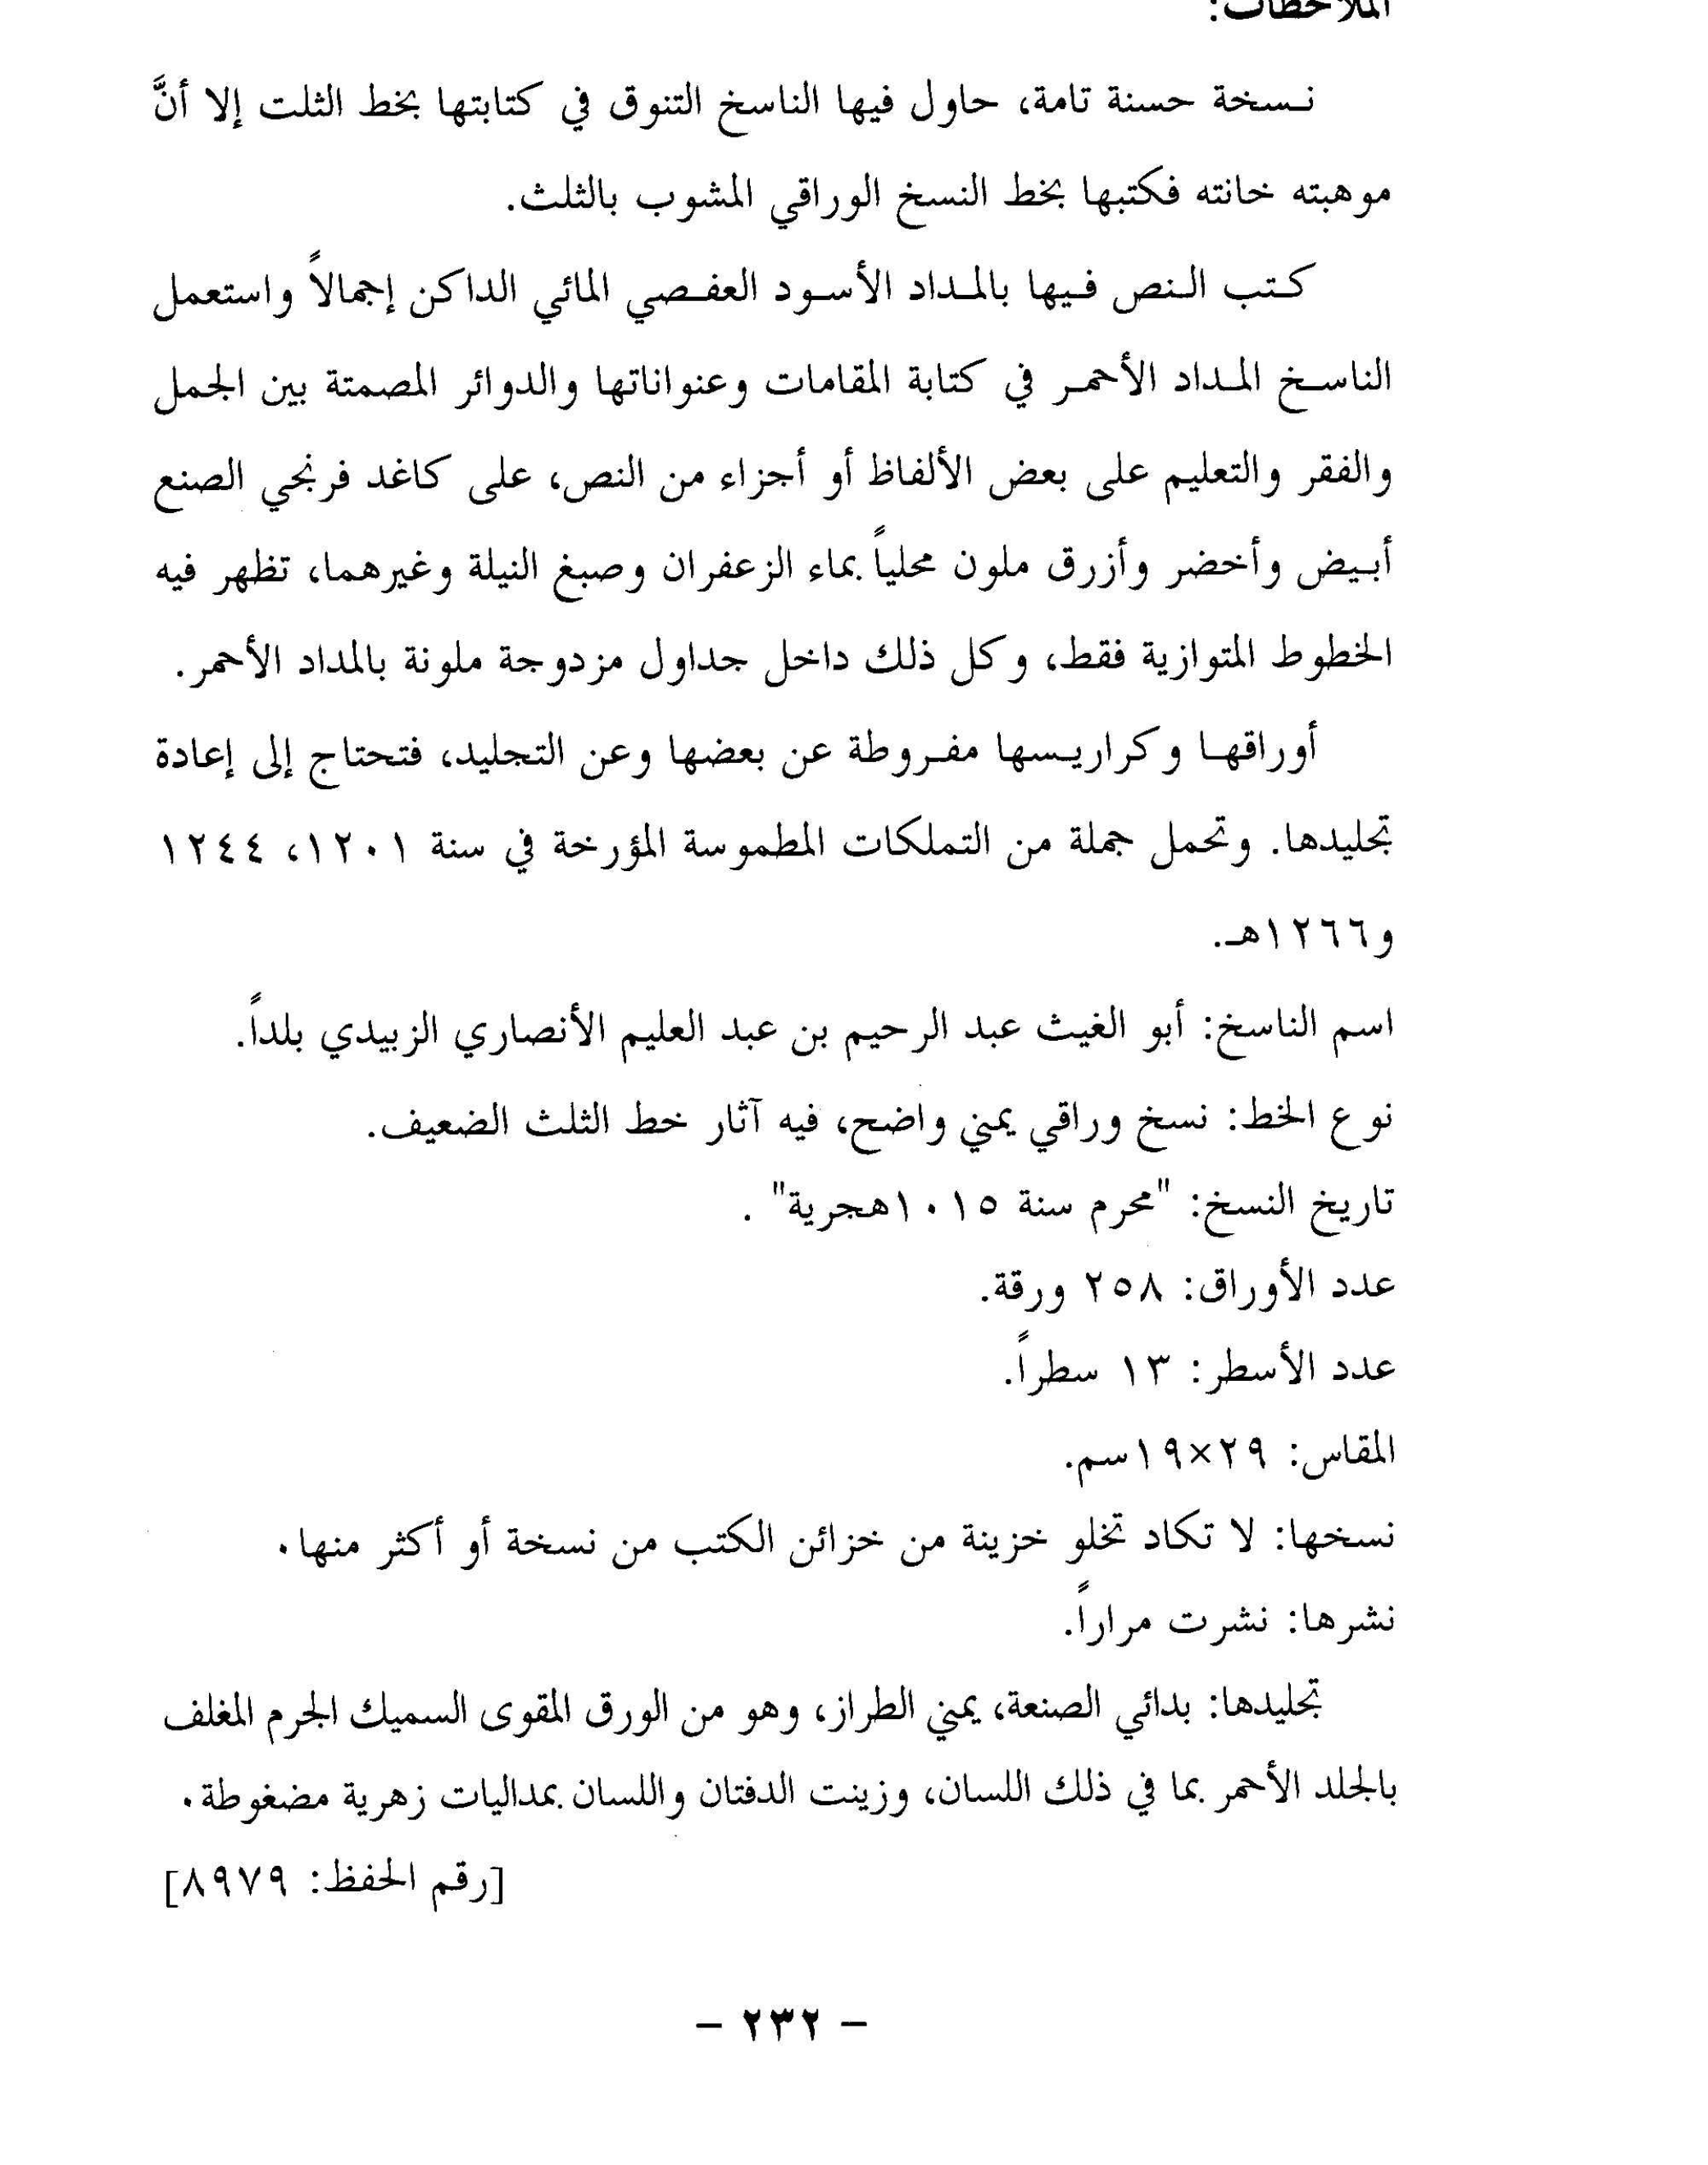 الملاحظات:
نسخة حسنة تامة، حاول فيها الناسخ التنوق في كتابتها بخط الثلت إلا أنَّ
موهبته خانته فكتبها بخط النسخ الوراقي المشوب بالثلث.
كتب النص فيها بالمداد الأسود العفصي المائي الداكن إجمالاً واستعمل
الناسخ المداد الأحمر في كتابة المقامات وعنواناتها والدوائر المصمتة بين الجمل
والفقر والتعليم على بعض الألفاظ أو أجزاء من النص، على كاغد فرنجي الصنع
أبيض وأخضر وأزرق ملون محلياً بماء الزعفران وصبغ النيلة وغيرهما، تظهر فيه
الخطوط المتوازية فقط، وكل ذلك داخل جداول مزدوجة ملونة بالمداد الأحمر.
أوراقها وكراريسها مفروطة عن بعضها وعن التجليد، فتحتاج إلى إعادة
تجليدها. وتحمل جملة من التملكات المطموسة المؤرخة في سنة ١٢٠١، ١٢٤٤
و١٢٦٦هـ.
اسم الناسخ: أبو الغيث عبد الرحيم بن عبد العليم الأنصاري الزبيدي بلداً.
نوع الخط: نسخ وراقي يمني واضح، فيه آثار خط الثلث الضعيف.
تاريخ النسخ: "محرم سنة ١٠١٥هجرية" .
عدد الأوراق: ٢٥٨ ورقة.
عدد الأسطر: ١٣ سطراً.
المقاس: ٢٩×١٩سم.
نسخها: لا تكاد تخلو خزينة من خزائن الكتب من نسخة أو أكثر منها.
نشرها: نشرت مراراً.
تجليدها: بدائي الصنعة، يمني الطراز، وهو من الورق المقوى السميك الجرم المغلف
بالجلد الأحمر بما في ذلك اللسان، وزينت الدفتان واللسان بمداليات زهرية مضغوطة.
[رقم الحفظ: ٨٩٧٩]
- ٢٣٢ -